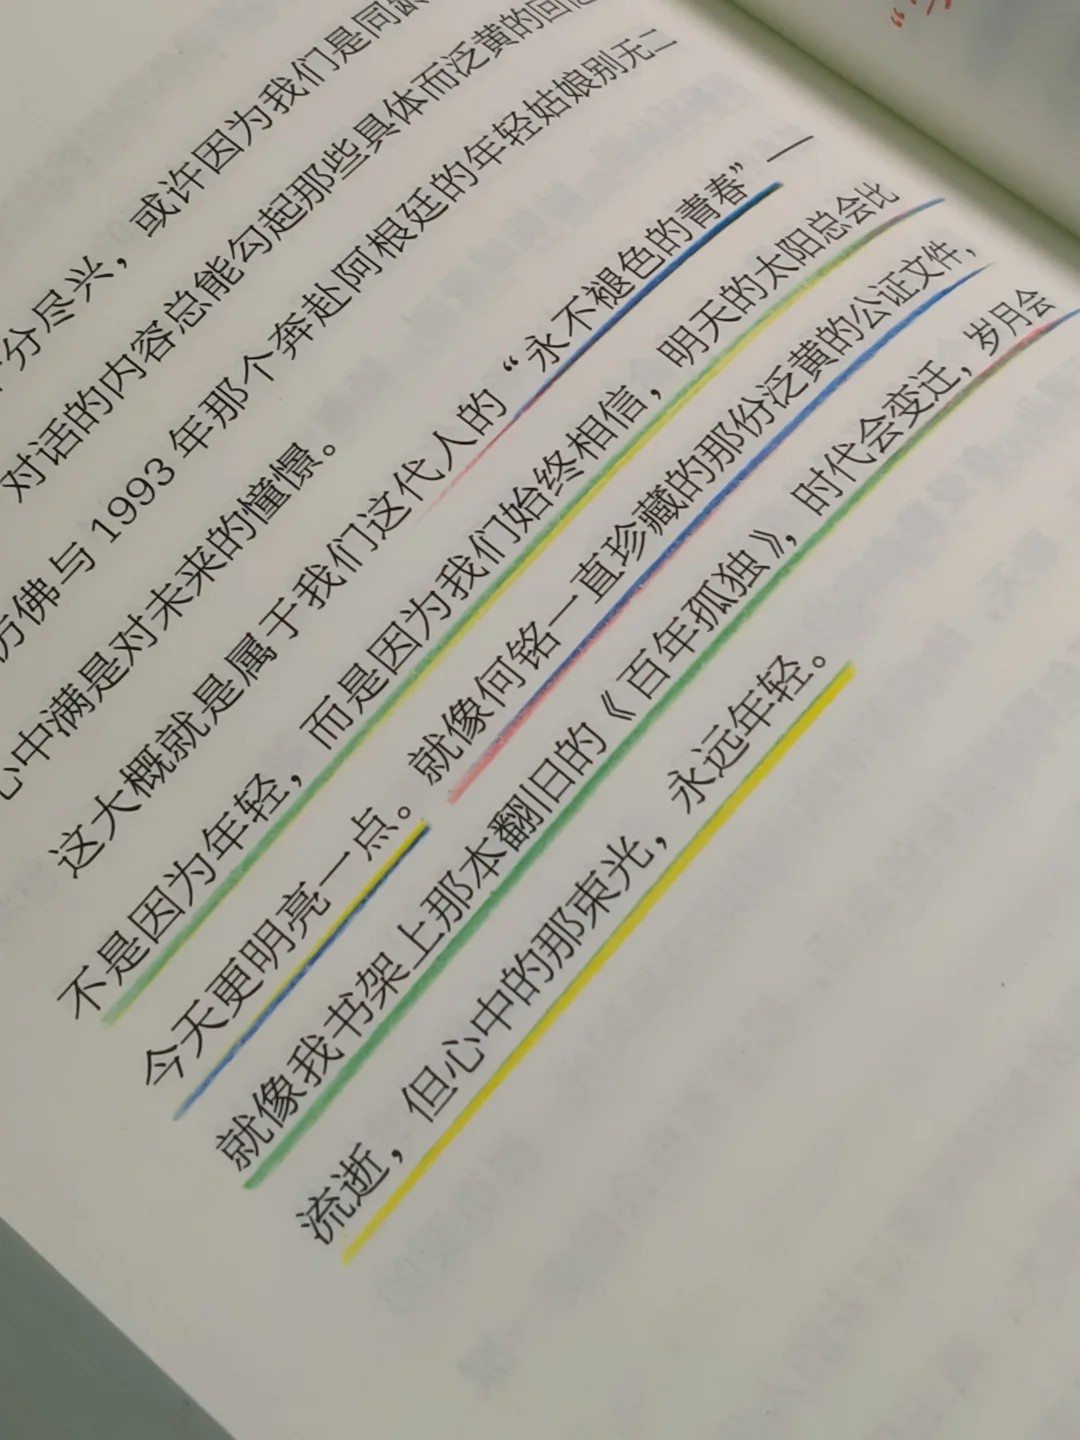 十分尽兴，或许因为我们是同龄
对话的内容总能勾起那些具体而泛黄的回忆
仿佛与 1993 年那个奔赴阿根廷的年轻姑娘别无二
心中满是对未来的憧憬。
这大概就是属于我们这代人的“永不褪色的青春”—
不是因为年轻，而是因为我们始终相信，明天的太阳总会比
今天更明亮一点。就像何铭一直珍藏的那份泛黄的公证文件，
就像我书架上那本翻旧的《百年孤独》，时代会变迁，岁月会
流逝，但心中的那束光，永远年轻。